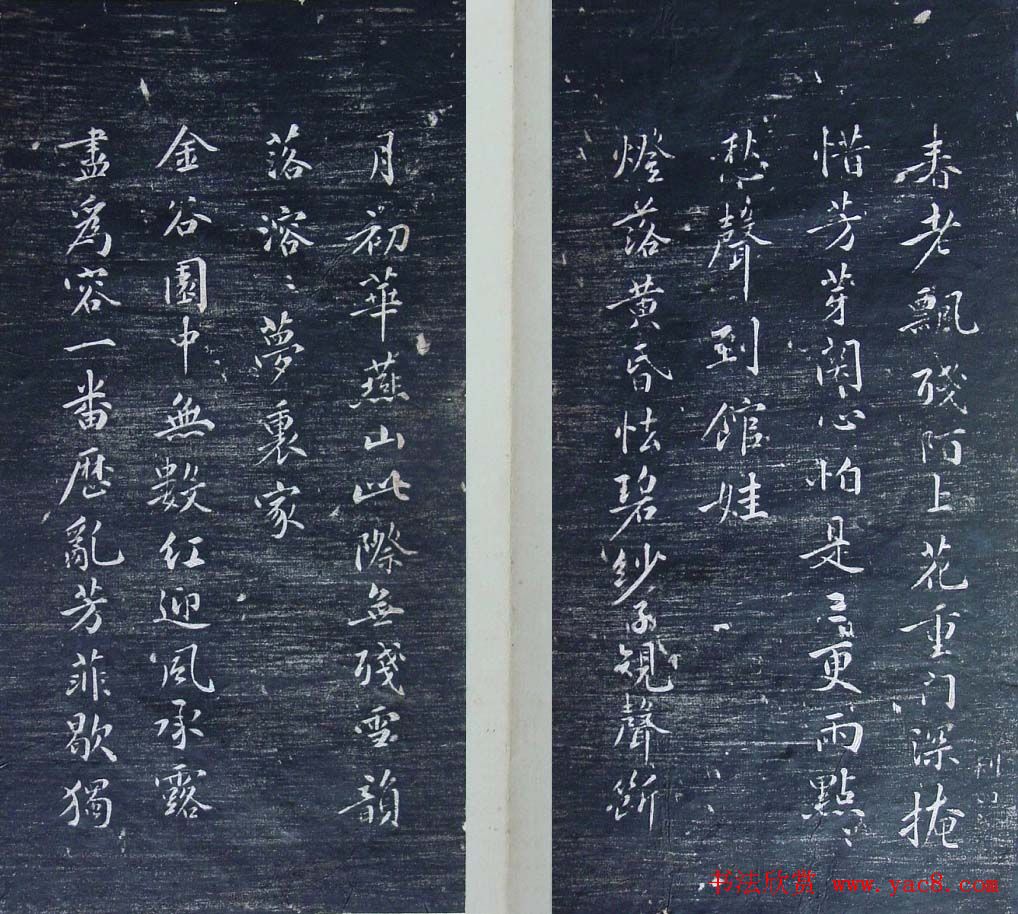 春老飄殘阿上花重门深掩
惜芳芽関心怕是三更雨點〻
愁聲到館娃
燈落黄昏怯碧紗子規聲斷
月初華燕山此際無殘雪韻
落溶〻夢裏家
金谷園中無數红迎風承露
盡爲容一番歷亂芳菲歇獨
书法欣赏 www.yac8.com